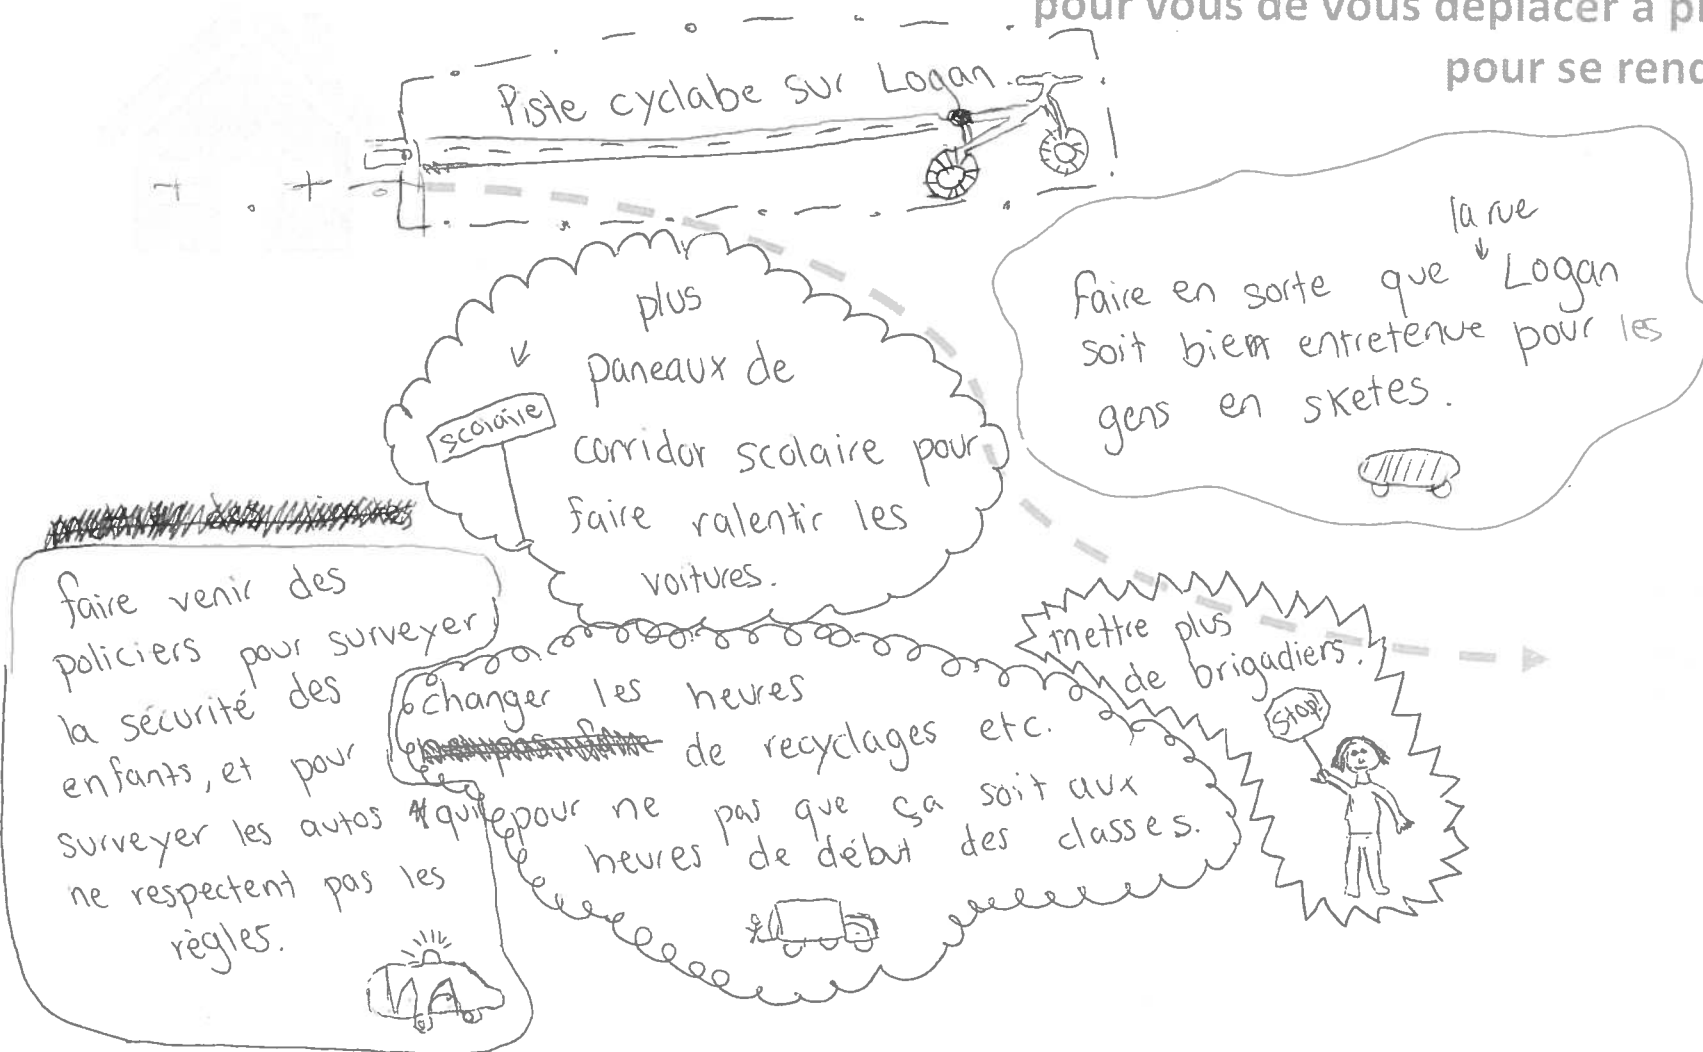 pour vous de vous déplacer à
pour se rend
Piste cyclabe sur Logan
la rue
faire en sorte que Logan
soit bien entretenue pour les
gens en sketes.
plus
paneaux de
scolaire
corridor scolaire pour
faire ralentir les
voitures.
faire venir des
policiers pour surveyer
la sécurité des
enfants, et pour
surveyer les autos qui
ne respectent pas les
règles.
changer les heures
de recyclages etc.
pour ne pas que ça soit aux
heures de début des classes.
mettre plus
de brigadiers.
Stop!